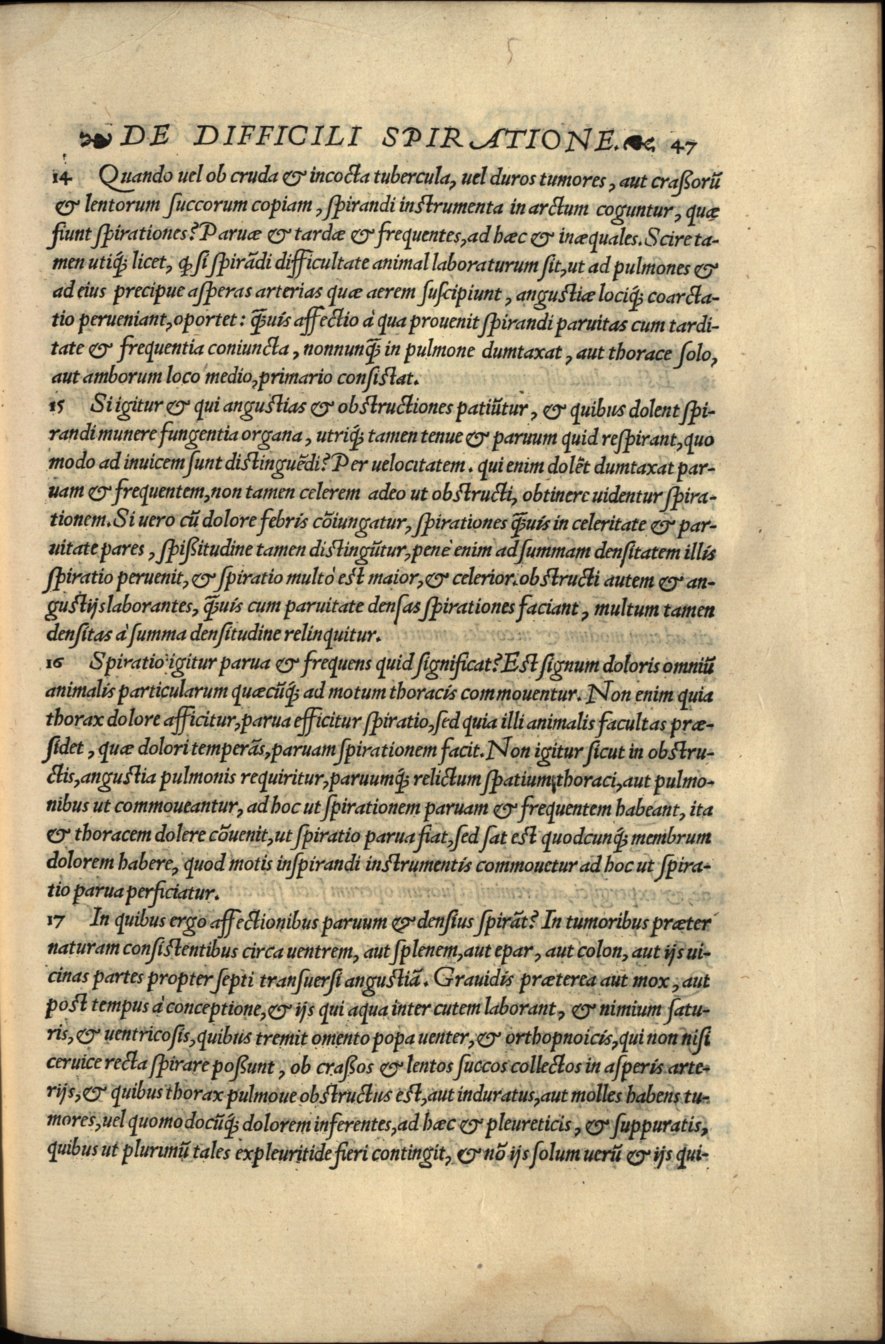 ❧ DE DIFFICILI SPIRATIONE. ☙ 47
14 Quando uel ob cruda & incocta tubercula, uel duros tumores, aut craßorũ
& lentorum succorum copiam, spirandi instrumenta in arctum coguntur, quæ
fiunt spirationes? Paruæ & tardæ & frequentes, ad hæc & inæquales. Scire ta-
men utiq́; licet, ꝙ si spirãdi difficultate animal laboraturum sit, ut ad pulmones &
ad eius precipue asperas arterias quæ aerem suscipiunt, angustiæ lociq́; coarcta-
tio perueniant, oportet: q̃uis affectio à qua prouenit spirandi paruitas cum tardi-
tate & frequentia coniuncta, nonnunq̃ in pulmone dumtaxat, aut thorace solo,
aut amborum loco medio, primario consistat.
15 Si igitur & qui angustias & obstructiones patiũtur, & quibus dolent spi-
randi munere fungentia organa, utriq́; tamen tenue & paruum quid respirant, quo
modo ad inuicem sunt distinguẽdi? Per uelocitatem. qui enim dolẽt dumtaxat par-
uam & frequentem, non tamen celerem adeo ut obstructi, obtinere uidentur spira-
tionem. Si uero cũ dolore febris cõiungatur, spirationes q̃uis in celeritate & par-
uitate pares, spißitudine tamen distingũtur, penè enim ad summam densitatem illis
spiratio peruenit, & spiratio multò est maior, & celerior. obstructi autem & an-
gustijs laborantes, q̃uis cum paruitate densas spirationes faciant, multum tamen
densitas à summa densitudine relinquitur.
16 Spiratio igitur parua & frequens quid significat? Est signum doloris omniũ
animalis particularum quæcũq́; ad motum thoracis commouentur. Non enim quia
thorax dolore afficitur, parua efficitur spiratio, sed quia illi animalis facultas præ-
sidet, quæ dolori temperãs, paruam spirationem facit. Non igitur sicut in obstru-
ctis, angustia pulmonis requiritur, paruumq́; relictum spatium thoraci, aut pulmo-
nibus ut commoueantur, ad hoc ut spirationem paruam & frequentem habeant, ita
& thoracem dolere cõuenit, ut spiratio parua fiat, sed sat est quodcunq́; membrum
dolorem habere, quod motis inspirandi instrumentis commouetur ad hoc ut spira-
tio parua perficiatur.
17 In quibus ergo affectionibus paruum & densius spirãt? In tumoribus præter
naturam consistentibus circa uentrem, aut splenem, aut epar, aut colon, aut ijs ui-
cinas partes propter septi transuersi angustiã. Grauidis præterea aut mox, aut
post tempus à conceptione, & ijs qui aqua inter cutem laborant, & nimium satu-
ris, & uentricosis, quibus tremit omento popa uenter, & orthopnoicis, qui non nisi
ceruice recta spirare poßunt, ob craßos & lentos succos collectos in asperis arte-
rijs, & quibus thorax pulmoue obstructus est, aut induratus, aut molles habens tu-
mores, uel quomodocũq́; dolorem inferentes, ad hæc & pleureticis, & suppuratis,
quibus ut plurimũ tales expleuritide fieri contingit, & nõ ijs solum uerũ & ijs qui-